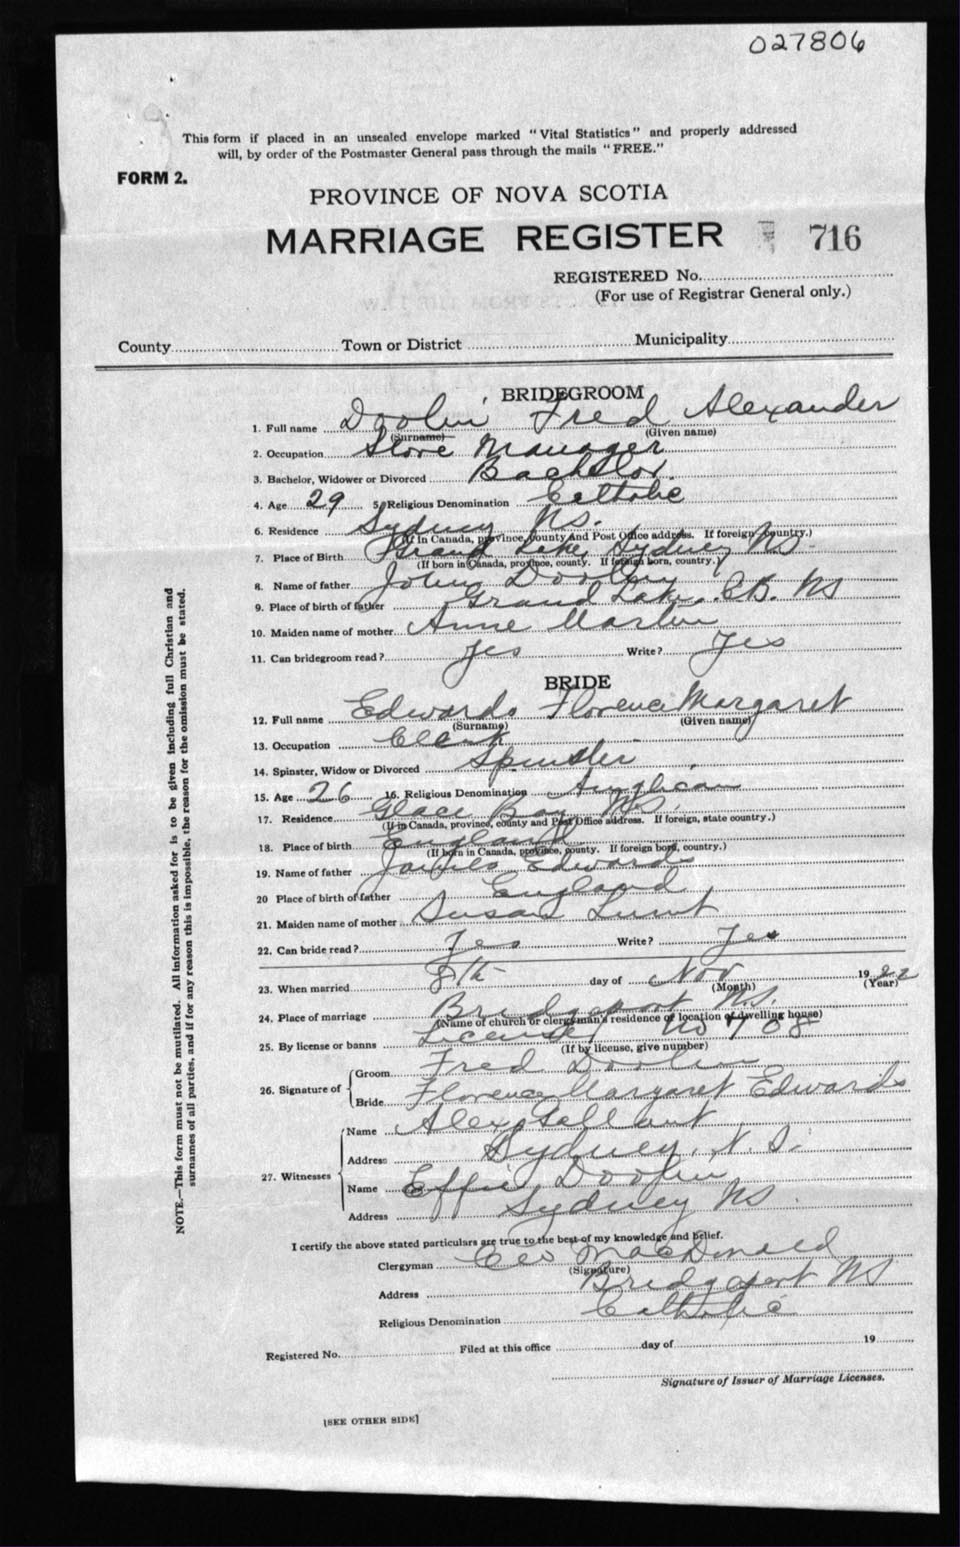 027806
This form if placed in an unsealed envelope marked "Vital Statistics" and properly addressed
will, by order of the Postmaster General pass through the mails "FREE."
FORM 2.
PROVINCE OF NOVA SCOTIA
MARRIAGE REGISTER 716
REGISTERED No.
(For use of Registrar General only.)
County Town or District Municipality
BRIDEGROOM
1. Full name Doolin Fred Alexander
(Surname) (Given name)
2. Occupation Store Manager
3. Bachelor, Widower or Divorced Bachelor
4. Age 29 5. Religious Denomination Catholic
6. Residence Sydney NS.
(If in Canada, province, county and Post Office address. If foreign, country.)
7. Place of Birth Grand Lake, Sydney NS.
(If born in Canada, province, county. If foreign born, country.)
8. Name of father John Doolin
9. Place of birth of father Grand Lake, C.B. NS
10. Maiden name of mother Anne Martin
11. Can bridegroom read? Yes Write? Yes
BRIDE
12. Full name Edwards Florence Margaret
(Surname) (Given name)
13. Occupation Clerk
14. Spinster, Widow or Divorced Spinster
15. Age 26 16. Religious Denomination Anglican
17. Residence Glace Bay NS.
(If in Canada, province, county and Post Office address. If foreign, state country.)
18. Place of birth England
(If born in Canada, province, county. If foreign born, country.)
19. Name of father James Edwards
20 Place of birth of father England
21. Maiden name of mother Susan Lunt
22. Can bride read? Yes Write? Yes
23. When married 8th day of Nov 1922
(Month) (Year)
24. Place of marriage Bridgeport N.S.
(Name of church or clergyman's residence or location of dwelling house)
25. By license or banns License No 708
(If by license, give number)
26. Signature of Groom Fred Doolin
Bride Florence Margaret Edwards
27. Witnesses Name Alex Gallant
Address Sydney, N.S.
Name Effie Doolin
Address Sydney NS.
I certify the above stated particulars are true to the best of my knowledge and belief.
Clergyman Geo MacDonald
(Signature)
Address Bridgeport NS
Religious Denomination Catholic
Registered No. Filed at this office day of 19
Signature of Issuer of Marriage Licenses.
[SEE OTHER SIDE]
NOTE.—This form must not be mutilated. All information asked for is to be given including full Christian and
surnames of all parties, and if for any reason this is impossible, the reason for the omission must be stated.